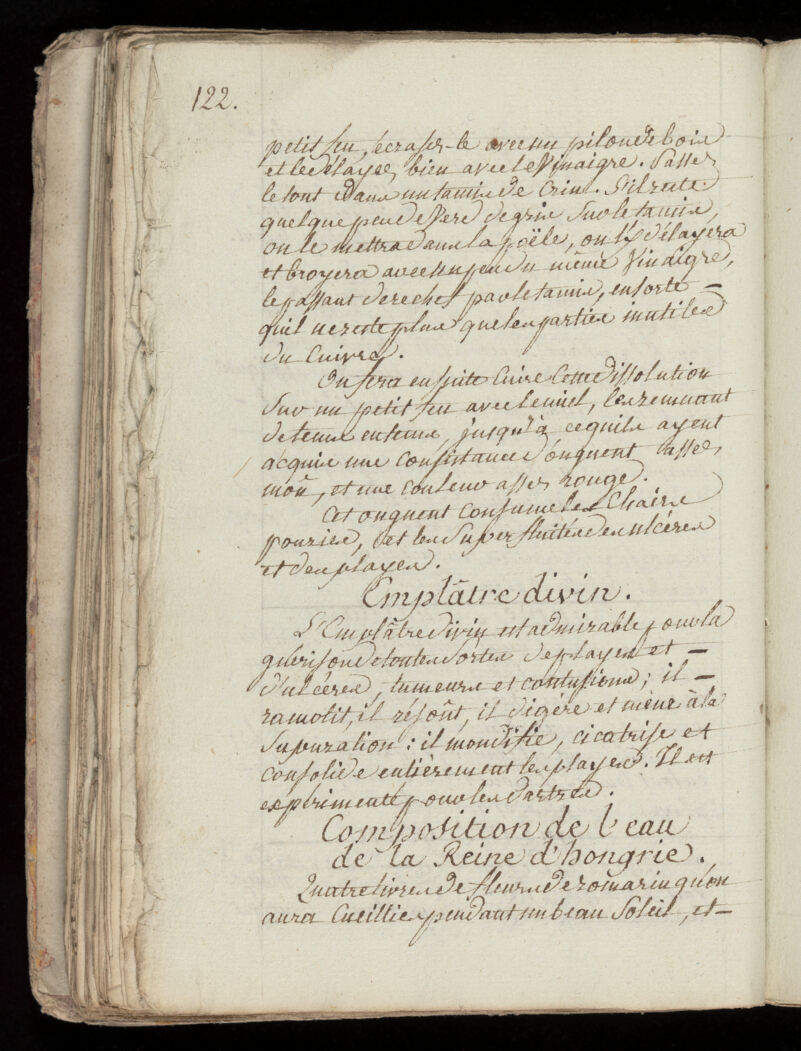 122.
petit feu, écrasés-le avec un pilon de bois
et le délayés bien avec le Vinaigre. Passés
le tout dans un tamis de Crin. S'il reste
quelque peu de Verd de gris sur le tamis,
on le mettra dans la poële, on l'y délayera
et broyera avec un peu du même Vinaigre,
le passant derechef par le tamis, ensorte -
qu'il ne reste plus que les parties inutiles
du Cuivre.
On fera ensuite Cuire Cette dissolution
sur un petit feu avec le miel, les remuant
de tems en tems, jusqu'à cequ'ils ayent
acquis une consistance d'onguent assés
mou, et une couleur assés rouge.
Cet onguent consume les Chairs
pouries, et les superfluités des ulcéres
et des playes.
Emplâtre divin.
L'Emplâtre divin est admirable pour la
guérison de toutes sortes de playes et -
d'ulcéres, tumeurs et contusions ; il -
ramolit, il résoût, il digére et mène à la
supuration : il mondifie, cicatrise et
consolide entièrement les playes. Il est
expérimenté pour les dartres.
Composition de l'eau
de la Reine d'hongrie.
Quatre livres de fleurs de romarin qu'on
aura Cueillies pendant un beau Soleil, et -